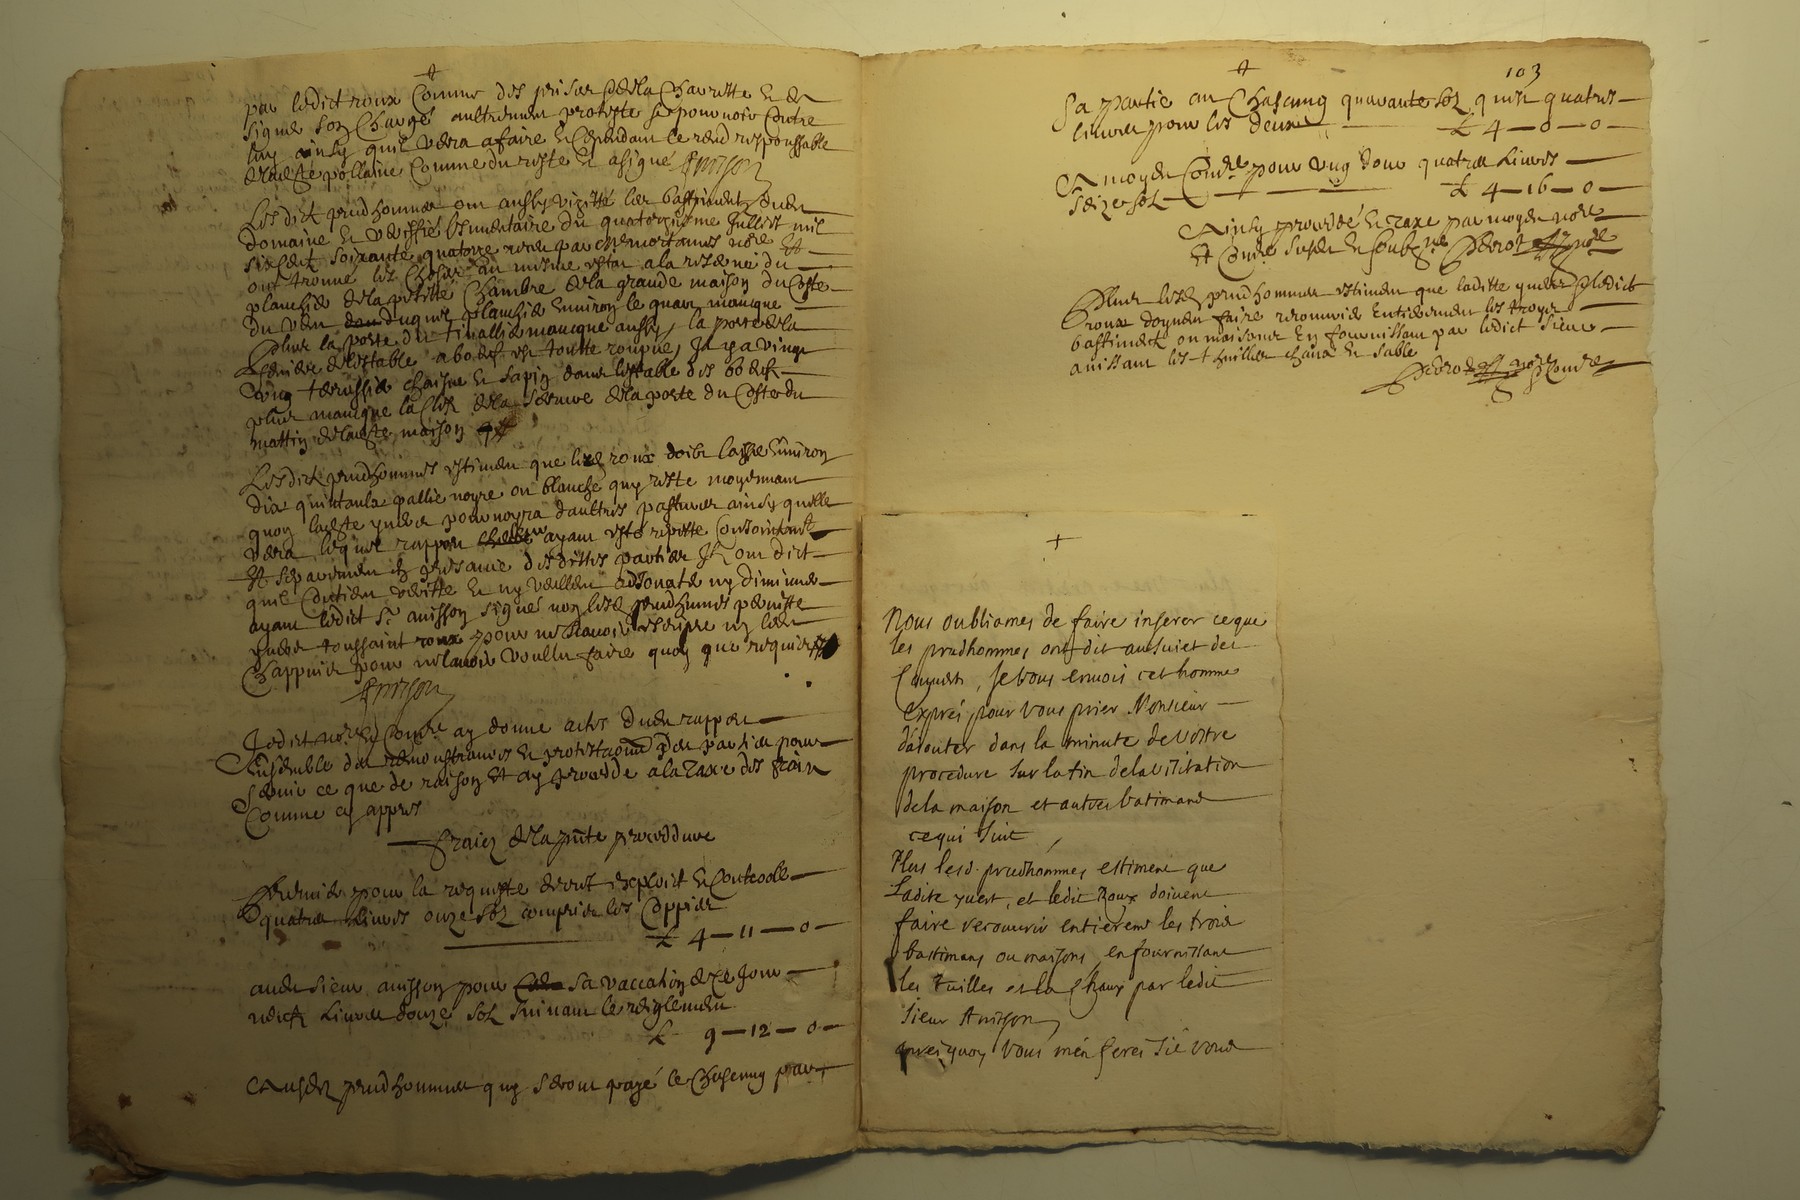 par ledict roux comme des prises de la charrette et de
signer son chargé aultrement proteste se pourvoir contre
luy ainsy quil verra a faire et cependant le rend responssable
comme du reste et a signé Anisson
Lesdicts prudhommes ont aussy vizitté les bastiments dudit
domaine et veriffié linventaire du quatorziesme Juillet mil
six cents soixante quatorze receu par notre et
ont trouvé les choses au mesme estat a la reserve du
planchier de la petitte chambre de la grande maison du costé
du vent duquel planchier environ le quart manque
Plus la porte du manque aussy, la porte de la
de lestable a bœufs est toutte rompue, Il y a vingt
cinq chaisne et sapin dans lestable des bœufs
plus manque la clef de la serrure de la porte du costé du
mattin de ladite maison
Lesdicts prudhommes estiment que ledit roux doibt laisser environ
dix quintaulx pallie noyre ou blanche quy reste moyennant
quoy ladite yvert pourvoyra daultres pastures ainsy quelle
verra lequel rapport ayant esté repetté conjoinctement
et separement en presance desdittes parties Ils ont dict
quil contient veritté et ny veullent adjouter ny diminuer
ayant ledict Sr anisson signé non lesd prudhommes
yvert toussaint roux pour ne scavoir escripre ny led
Chappuis pour navoir voullu faire quoy que requis
Anisson
Jedict notre et Comre ay donné acte dudit rapport
Ensemble des remonstrances et protestations des parties pour
servir ce que de raison et ay proceddé a la taxe des fraix
Comme cy appres
Fraix de la pnte proceddure
Premier pour la requeste decret exploict et controlle
quatre livres onze solz comprins les coppies
£ 4 — 11 — 0
audit sieur anisson pour sa vaccation de ce jour
neuf livres douze solz suivant le reiglement
£ 9 — 12 — 0
Ausdits prudhommes quy seront payé le chascung par
103
sa partie au chascung quarante solz quest quattre
livres pour les deux £ 4 — 0 — 0
A moyder Comre pour ung jour quatre livres
seize solz £ 4 — 16 — 0
Ainsy proceddé et taxé par moyder notre
et Comre susdit et soubzné
Plus lesd prudhommes estiment que laditte yvert et ledict
roux doyvent faire recouvrir entierement les troys
bastiments ou maisons en fournissant par ledict sieur
anissant les thuilles chaux et sable
Nous oubliames de faire inserer ce que
les prudhommes ont dit au sujet des
couverts, je vous envois cet homme
exprés pour vous prier Monsieur
d'ajouter dans la minute de vostre
procedure sur la fin de la visitation
de la maison et autres batimans
ce qui suit
Plus lesd. prudhommes estiment que
Ladite yvert, et ledit Roux doivent
faire recouvrir entierem les trois
bastimans ou maisons, en fournissant
les tuilles et la chaux par ledit
sieur Anisson
aprés quoy vous m'en ferés s'il vous